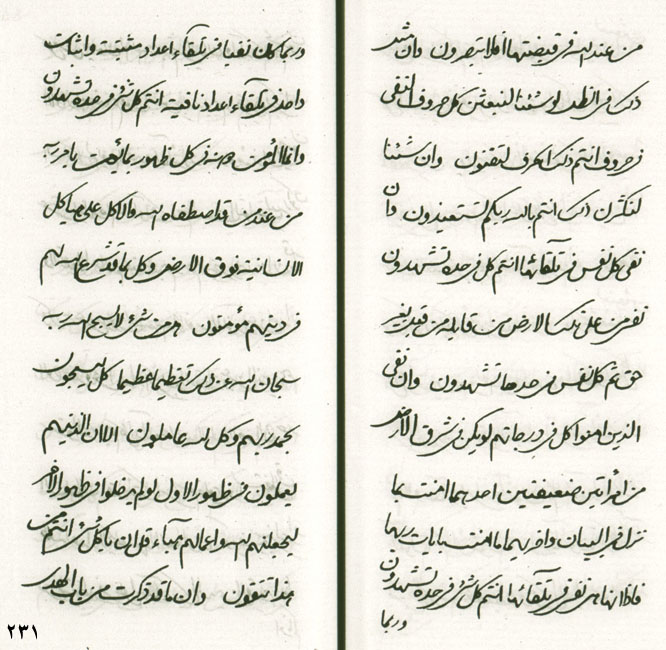 من عند الله فى قبضتها افلا تبصرون وان مثل
ذلك فى الظل لو شئنا لنبعثن كل حروف النفى
فى حروف انتم ذلك الحرف لتفنون وان شئنا
لنكثرن ذلك انتم بالله ربكم لتستعيذون وان
نفى كل نفس فى تلقائها انتم كل فى حده تشهدون
نفى من على تلك الارض من قابله من قبل بغير
حق ثم كل نفس فى حدها تشهدون وان نفى
الذين امنوا كل فى درجاتهم لو يكن فى شرق الارض
من امراتين ضعيفتين احدهما امنت بما
نزل فى البيان واخريهما ما امنت بايات ربهما
فاذا انها هى نفى فى تلقائها انتم كل شئ فى حده تشهدون
وربما
وربما كان نفيا فى تلقاء اعداد مثبتة واثبات
واحد فى تلقاء اعداد نافية انتم كل شئ فى حده تشهدون
وانما المؤمن فى كل ظهور بما يؤمن بامر ربه
من عند من قد اصطفاه الله والا كل على هياكل
الانسانية فوق الارض وكل بما قد شرع الله لهم
فى دينهم مؤمنون هل من شئ لا يسبح الله ربه
سبحان الله عن ذلك تعظيما عظيما كل ليسبحون
بحمد ربهم وكل لله عاملون الا ان الذينهم
يعملون فى ظهور الاول لو لم يدخلوا فى ظهور الاخر
ليجعلنهم الله واعمالهم هباء قل ان يا كل شئ انتم من
هذا تتقون وان ما قد ذكرت من باب الهدى
٢٣١